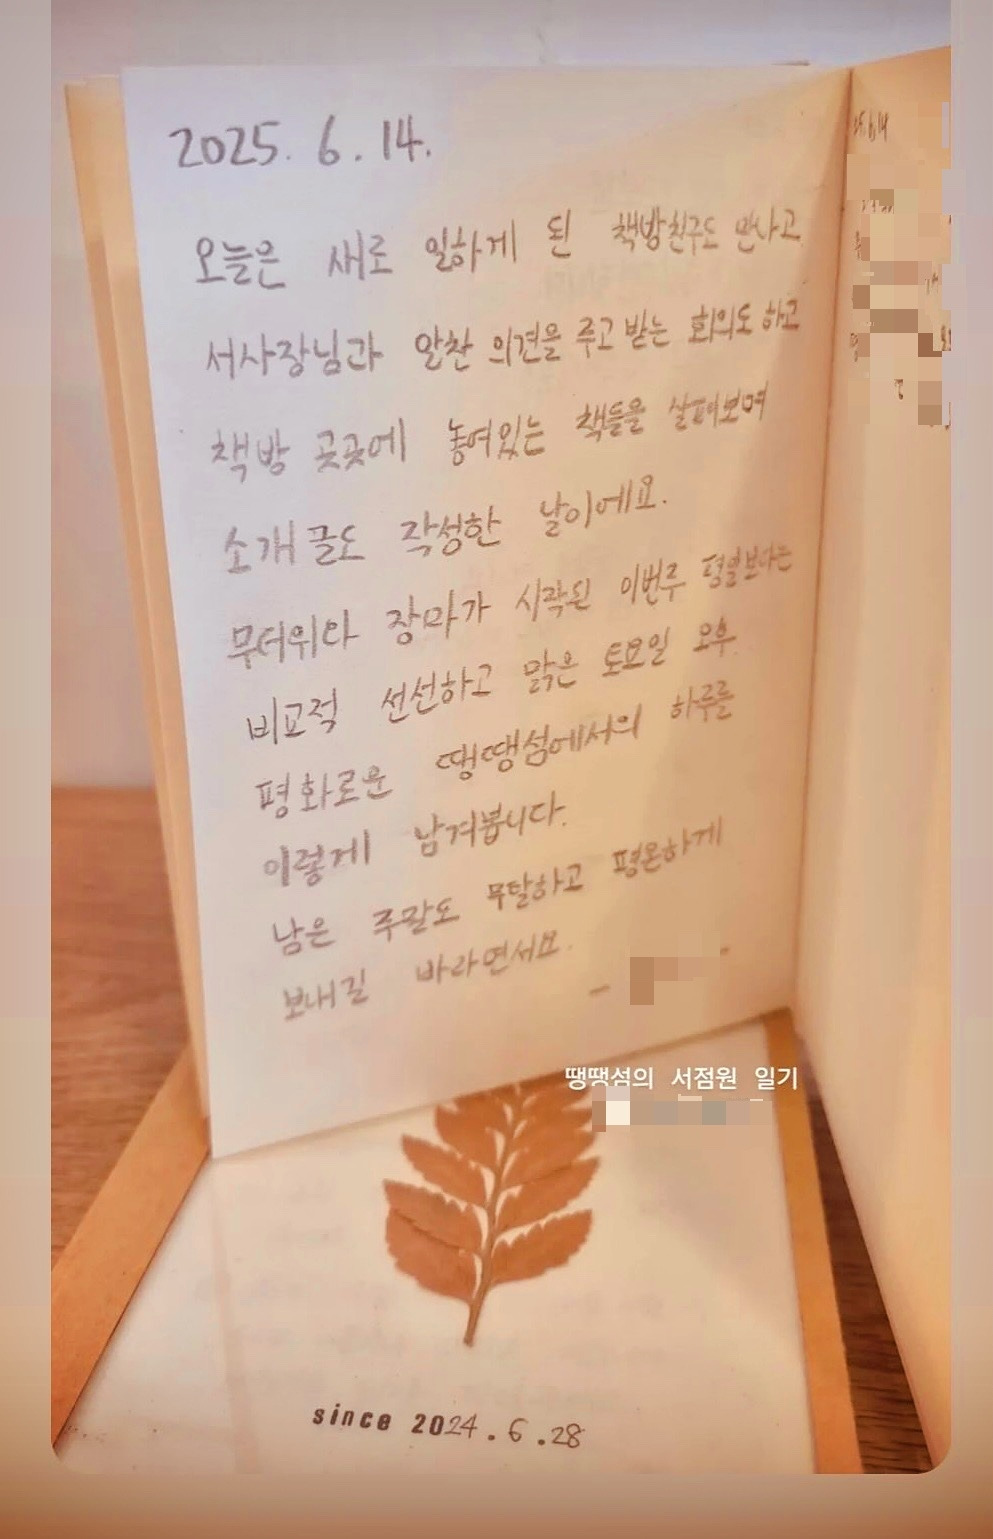 2025. 6. 14.
오늘은 새로 일하게 된 책방친구도 만나고
서사장님과 알찬 의견을 주고 받는 회의도 하고
책방 곳곳에 놓여있는 책들을 살펴보며
소개글도 작성한 날이에요.
무더위와 장마가 시작된 이번주 평일보다는
비교적 선선하고 맑은 토요일 오후
평화로운 땡땡섬에서의 하루를
이렇게 남겨봅니다.
남은 주말도 무탈하고 평온하게
보내길 바라면서요.
땡땡섬의 서점원 일기
since 2024.6.28